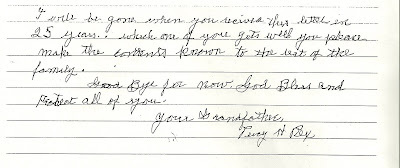 I will be gone when you recived this letter in
25 years. which one of you gets will you please
make the contents known to the rest of the
family.
Good Bye for now God Bless and
Protect all of you.
your Grandfather
H